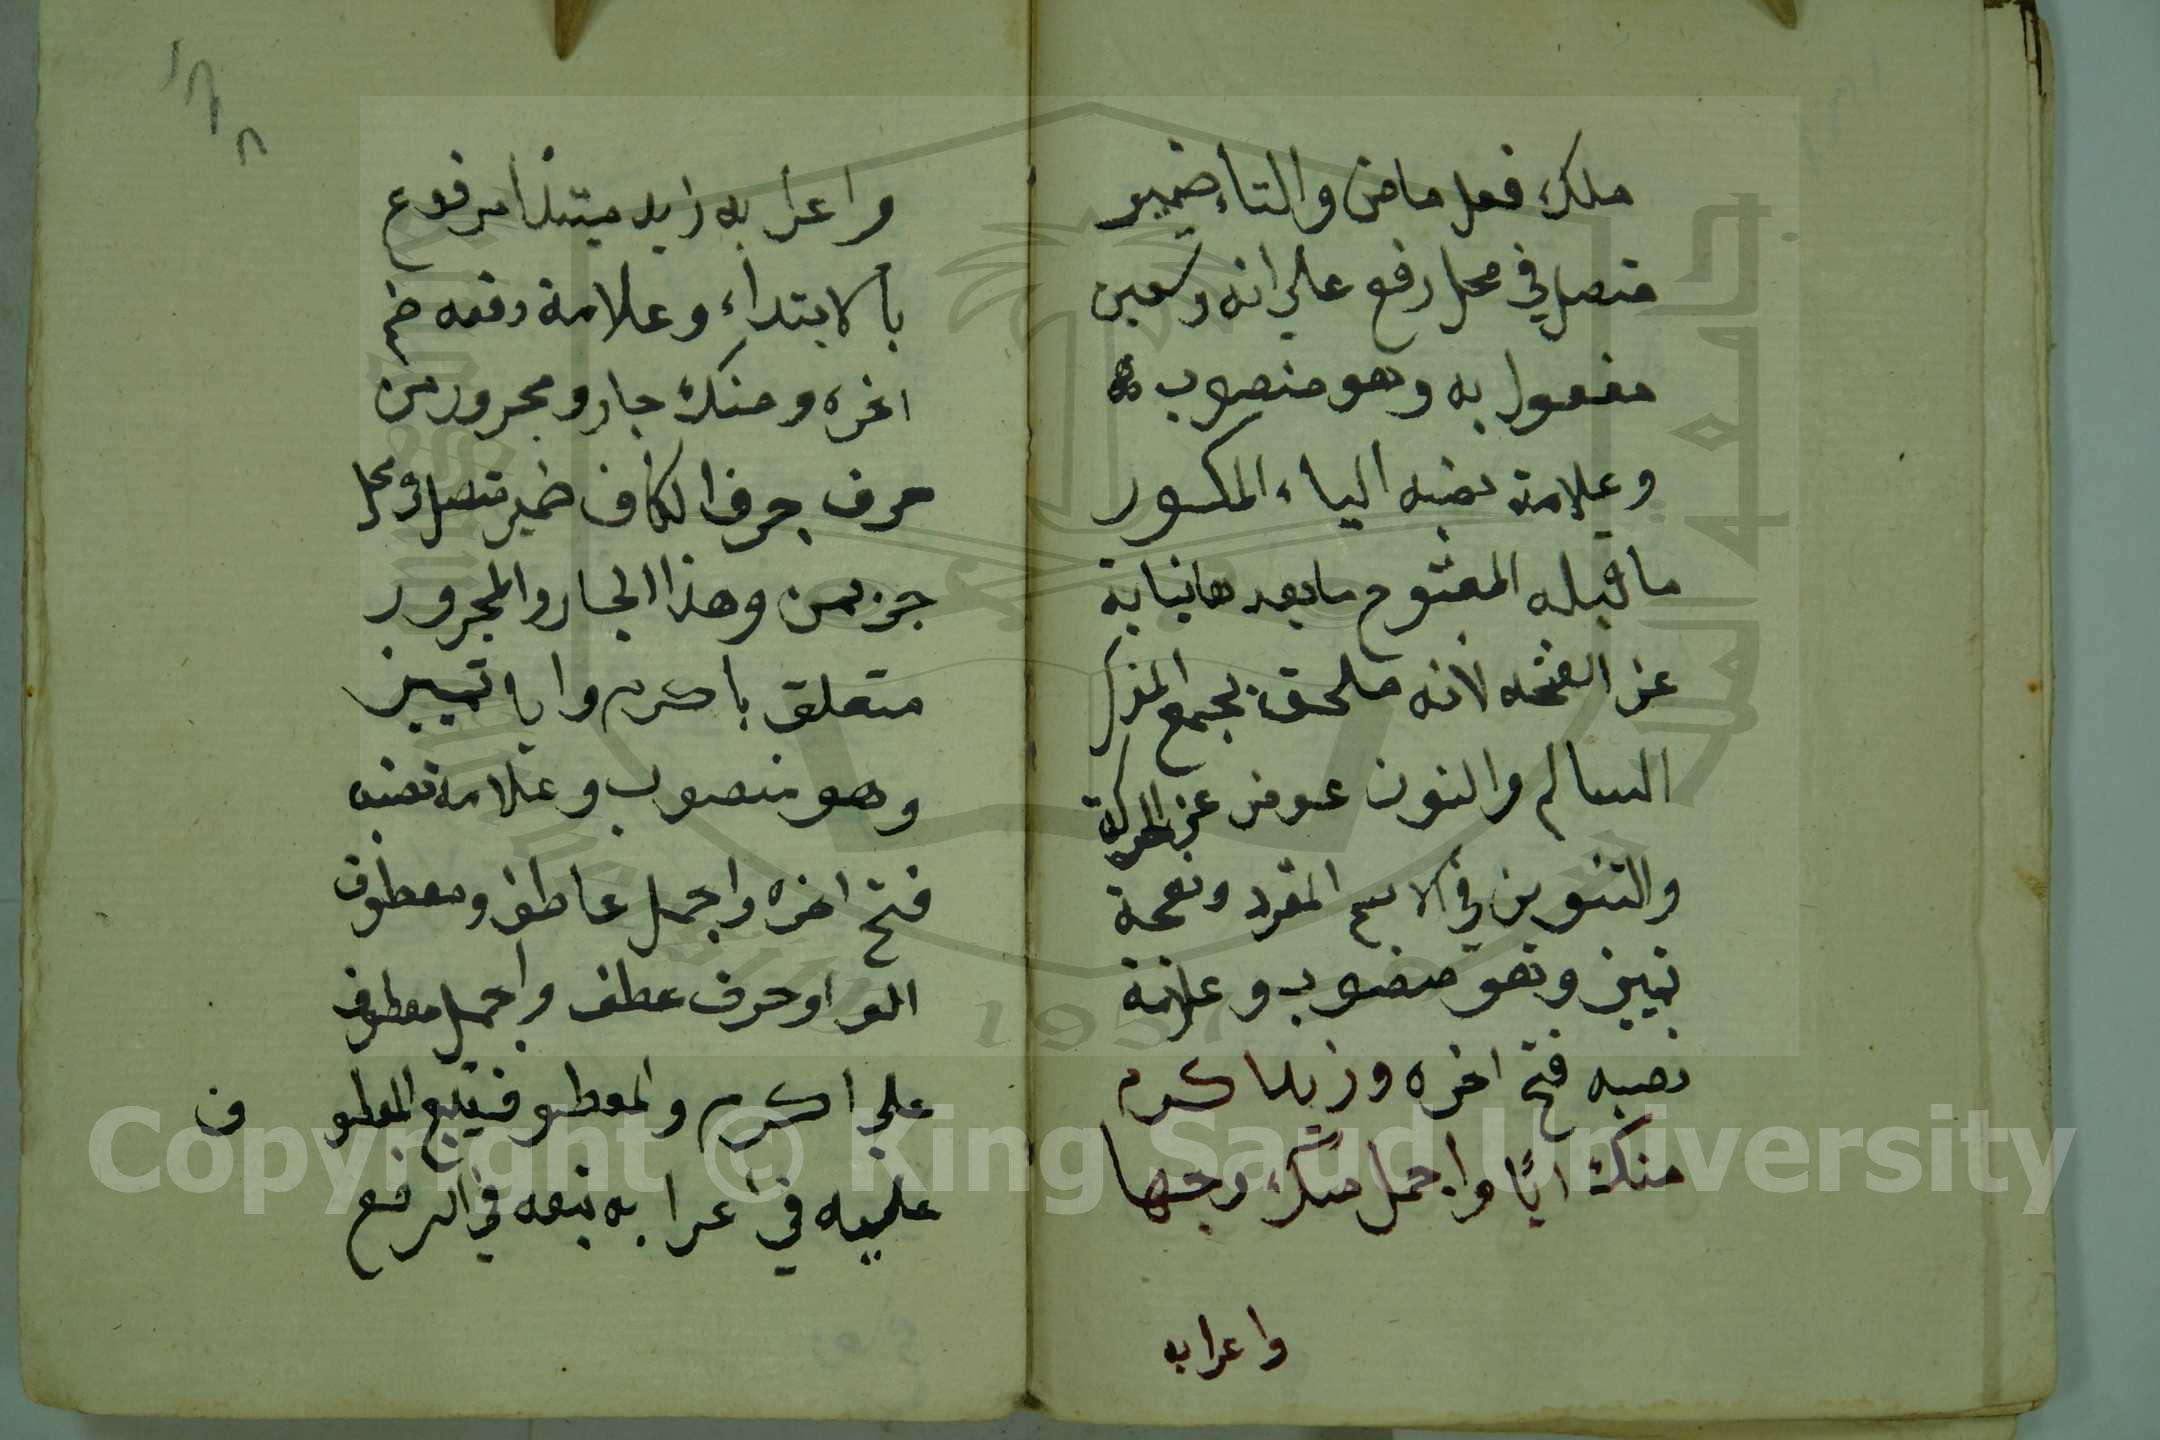 ملك فعل ماض والتاء ضمير
متصل في محل رفع علي انه وتسعين
مفعول به وهو منصوب
وعلامة نصبه الياء المكسور
ما قبله المفتوح ما بعدها نيابة
عن الفتحه لانه ملحق بجمع المذكر
السالم والنون عوض عن الحركة
والتنوين في الاسم المفرد ونعجة
تمييز وهو منصوب وعلامة
نصبه فتح اخره وزيد اكرم
منك ابا واجمل منك وجها
واعرابه
واعرابه زيد مبتدا مرفوع
بالابتداء وعلامة رفعه ضم
اخره ومنك جار ومجرور من
حرف جر والكاف ضمير متصل في محل
جر بمن وهذا الجار والمجرور
متعلق باكرم وابا تمييز
وهو منصوب وعلامة نصبه
فتح اخره واجمل عاطف ومعطوف
الواو حرف عطف واجمل معطوف
علي اكرم والمعطوف يتبع المعطو ف
عليه في اعرابه تبعه في الرفع
Copyright © King Saud University
1957